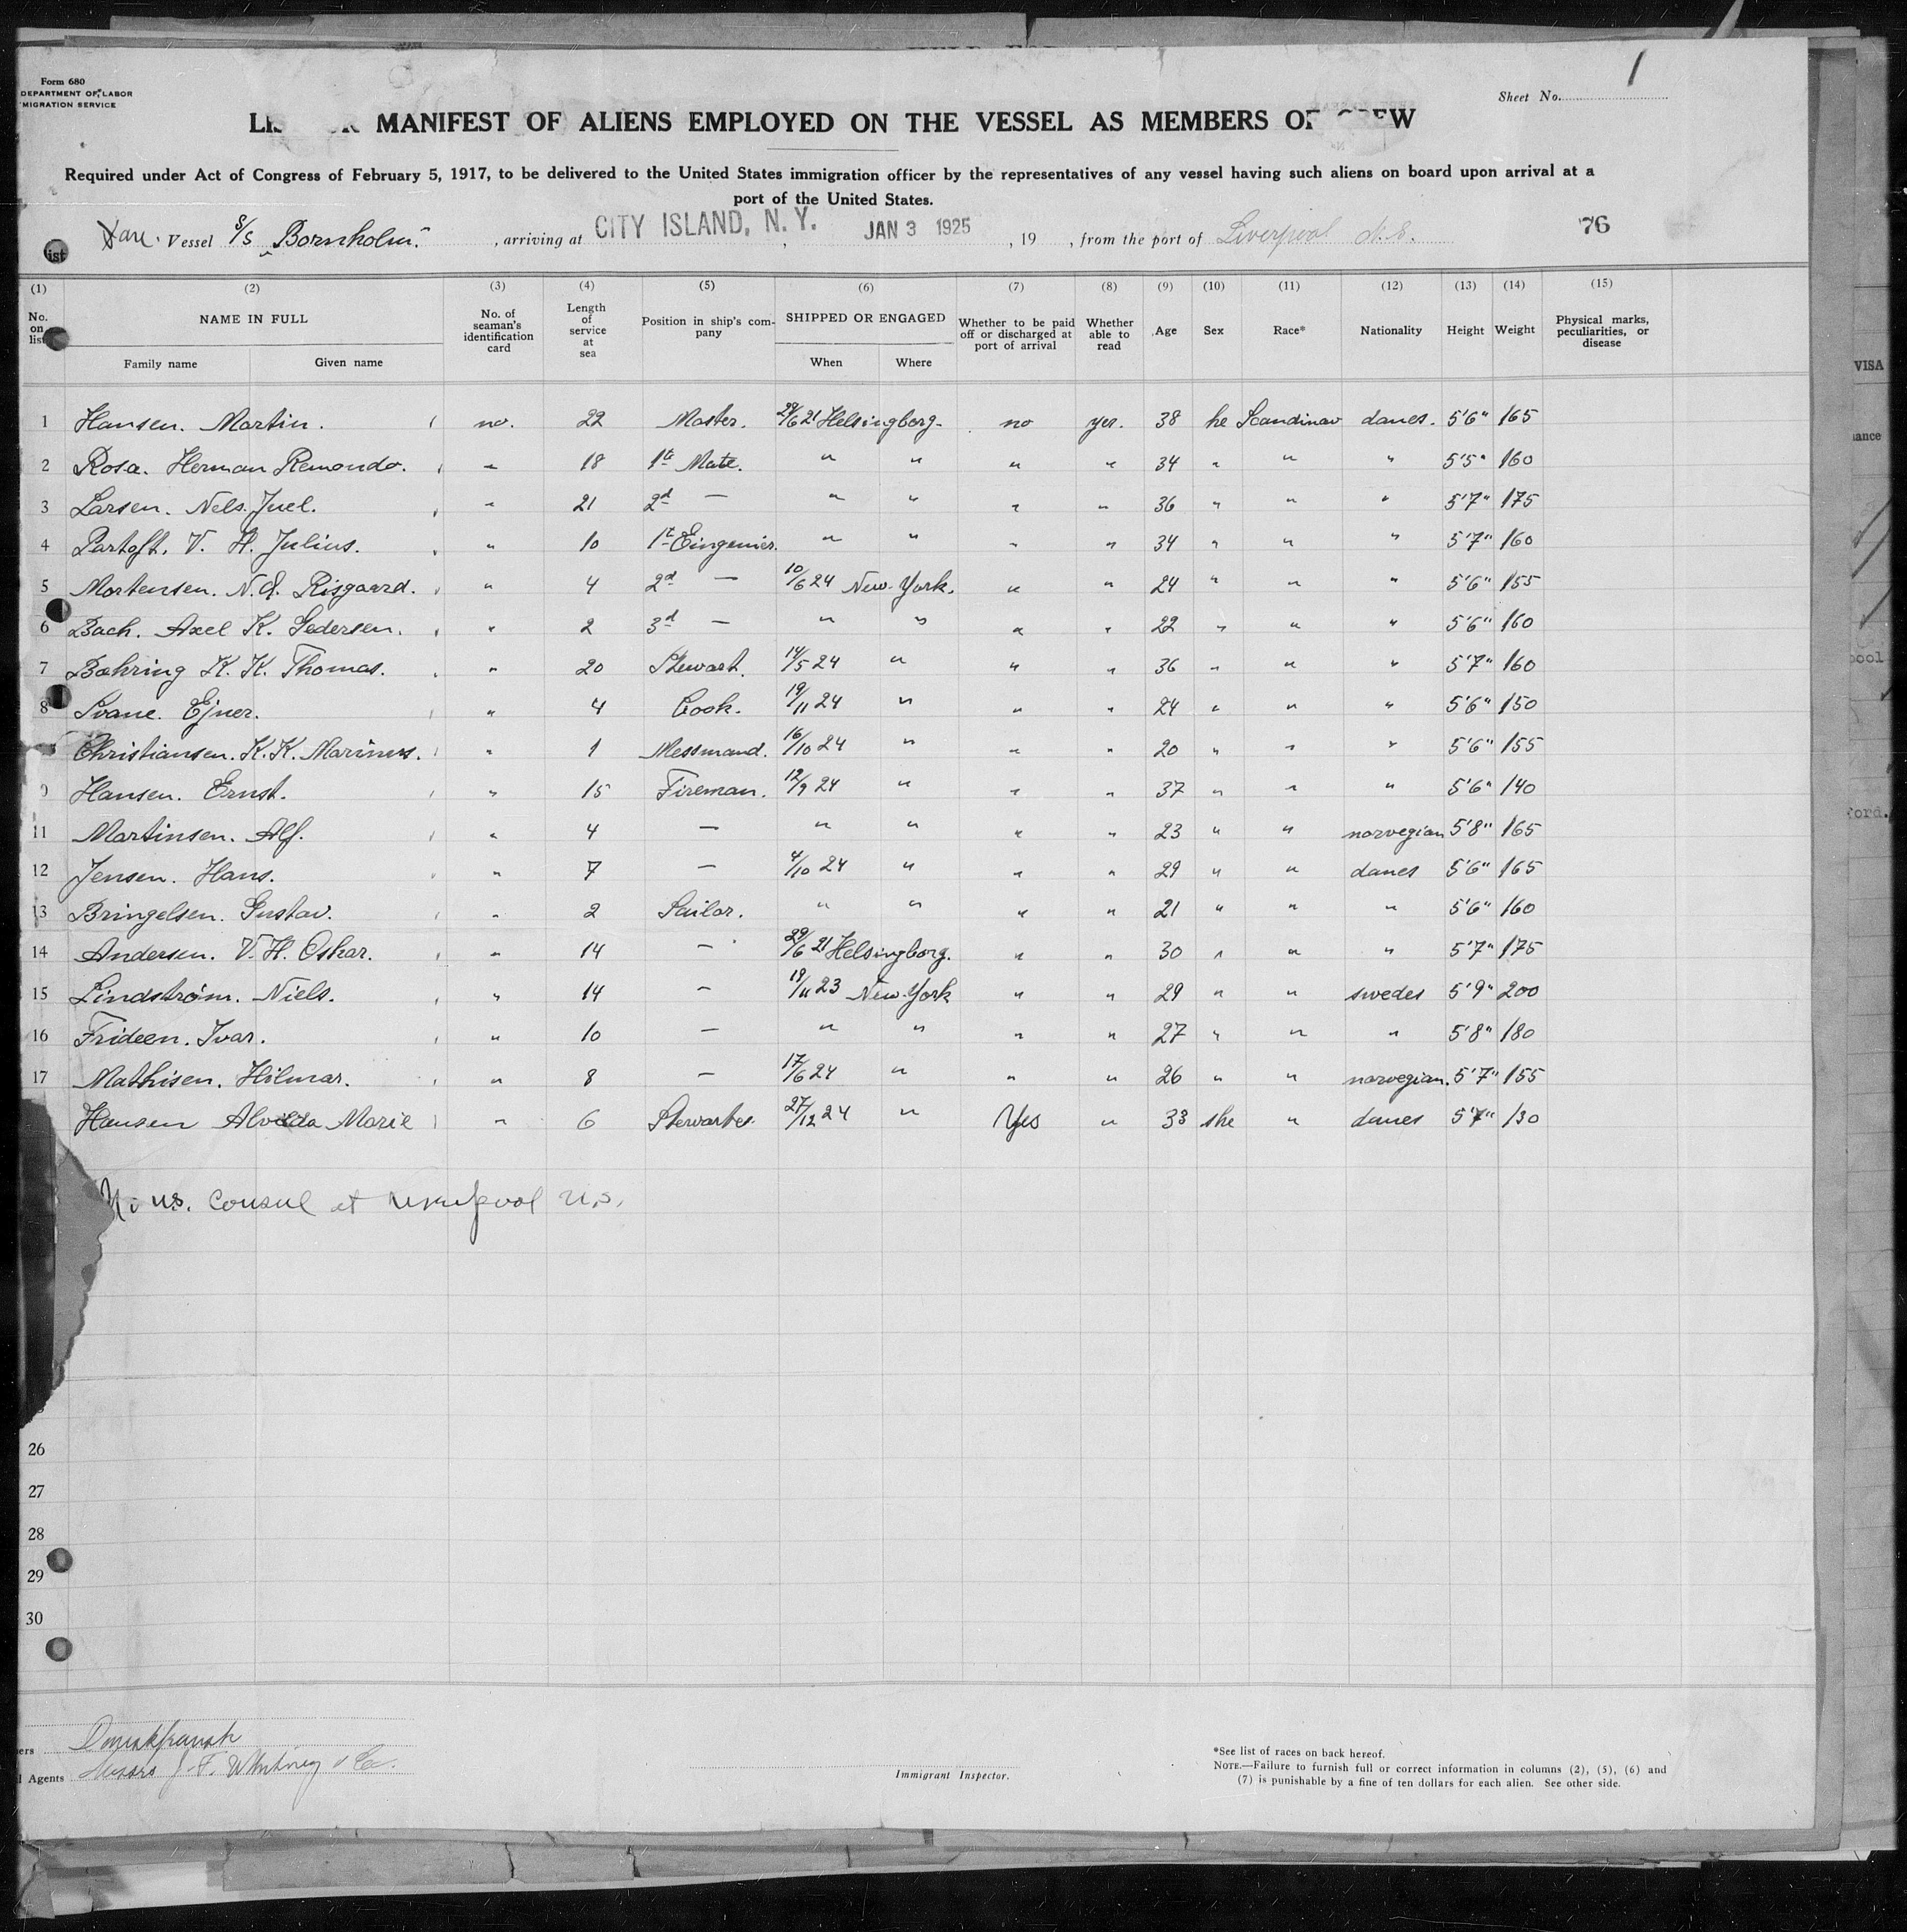 Form 680
DEPARTMENT OF LABOR
MIGRATION SERVICE
Sheet No. 1
MANIFEST OF ALIENS EMPLOYED ON THE VESSEL AS MEMBERS OF CREW
Required under Act of Congress of February 5, 1917, to be delivered to the United States immigration officer by the representatives of any vessel having such aliens on board upon arrival at a
port of the United States.
Vessel S/S Bornholm , arriving at CITY ISLAND, N. Y. , JAN 3 1925 , 19 , from the port of Liverpool N.S. 76
list
(1) (2) (3) (4) (5) (6) (7) (8) (9) (10) (11) (12) (13) (14) (15)
No. on list NAME IN FULL Family name Given name No. of seaman's identification card Length of service at sea Position in ship's company SHIPPED OR ENGAGED When Where Whether to be paid off or discharged at port of arrival Whether able to read Age Sex Race* Nationality Height Weight Physical marks, peculiarities, or disease
1 Hansen. Martin. no. 22 Master. 29/6 21 Helsingborg. no yes. 38 he Scandinav danes. 5'6" 165
2 Rosa. Herman Remondo. " 18 1st Mate. " " " " 34 " " " 5'5" 160
3 Larsen. Nels. Juel. " 21 2d — " " " " 36 " " " 5'7" 175
4 Partoft. V. H. Julius. " 10 1st Eingenier. " " " " 34 " " " 5'7" 160
5 Mortensen. N.J. Risgaard. " 4 2d — 10/6 24 New-York. " " 24 " " " 5'6" 155
6 Bach. Axel K. Pedersen. " 2 3d — " " " " 22 " " " 5'6" 160
7 Bohring K. K. Thomas. " 20 Stewart. 14/5 24 " " " 36 " " " 5'7" 160
8 Svane. Ejner. " 4 Cook. 19/11 24 " " " 24 " " " 5'6" 150
Christiansen. K. K. Marinus. " 1 Messmand. 16/10 24 " " " 20 " " " 5'6" 155
Hansen. Ernst. " 15 Fireman. 12/9 24 " " " 37 " " " 5'6" 140
11 Martinsen. Alf. " 4 — " " " " 23 " " norvegian 5'8" 165
12 Jensen. Hans. " 7 — 4/10 24 " " " 29 " " danes 5'6" 165
13 Bringelsen. Gustav. " 2 Sailor. " " " " 21 " " " 5'6" 160
14 Andersen. V. H. Oskar. " 14 — 29/6 21 Helsingborg. " " 30 " " " 5'7" 175
15 Lindstrøm. Niels. " 14 — 19/11 23 New-York " " 29 " " swedes 5'9" 200
16 Frideen. Ivar. " 10 — " " " " 27 " " " 5'8" 180
17 Mathisen. Hilmar. " 8 — 17/6 24 " " " 26 " " norvegian. 5'7" 155
Hansen Marie " 6 27/12 24 " Yes " 33 she " danes 5'7" 130
U.S. Consul at Liverpool N.S.
26
27
28
29
30
ers
Agents Messrs J. F. Whitney & Co.
Immigrant Inspector.
*See list of races on back hereof.
NOTE.—Failure to furnish full or correct information in columns (2), (5), (6) and
(7) is punishable by a fine of ten dollars for each alien. See other side.
VISA
ance
pool
ford.